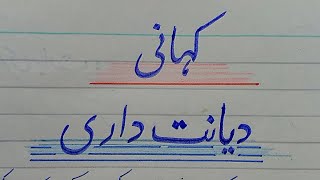 کہانی
دیانت داری